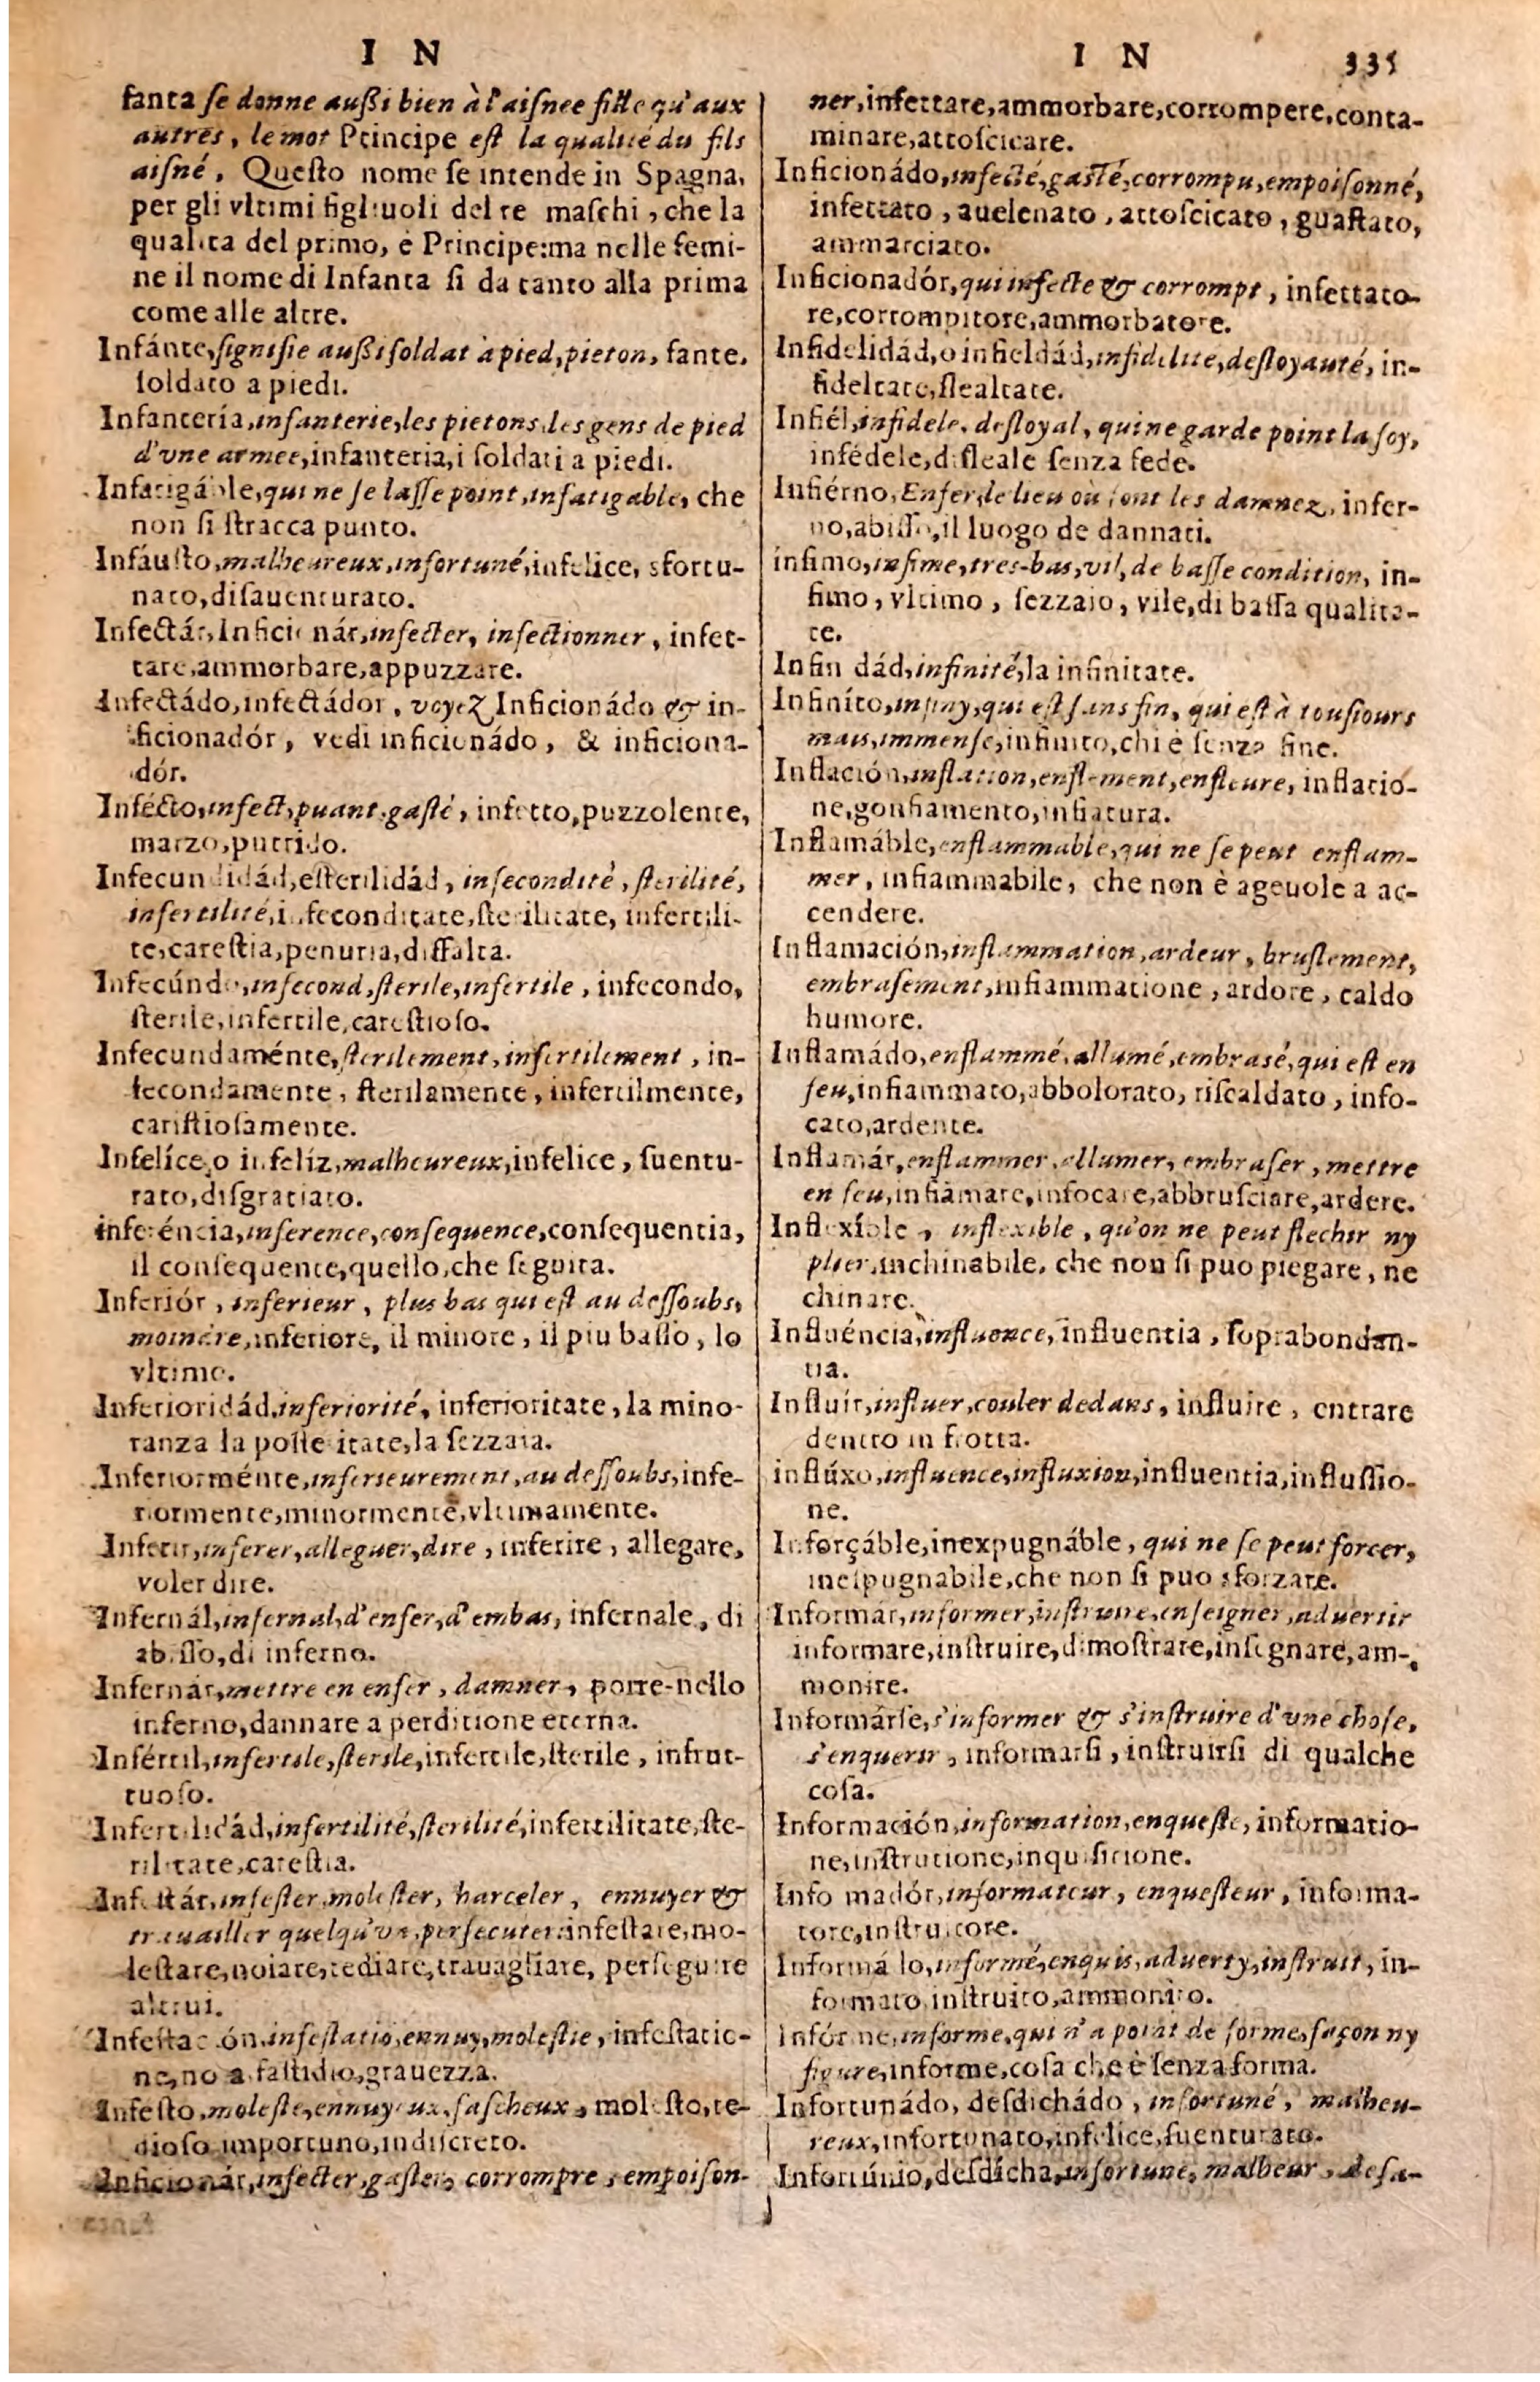 I N
fanta se donne außi bien à l'aisnee fille qu'aux
autres, le mot Principe est la qualité du fils
aisné, Questo nome se intende in Spagna,
per gli vltimi figliuoli del re maschi, che la
qualita del primo, è Principe: ma nelle femi-
ne il nome di Infanta si da tanto alla prima
come alle altre.
Infánte, signifie außi soldat à pied, pieton, fante,
soldato a piedi.
Infantería, infanterie, les pietons, les gens de pied
d'vne armee, infanteria, i soldati a piedi.
Infatigáble, qui ne se lasse point, infatigable, che
non si stracca punto.
Infáusto, malheureux, infortuné, infelice, sfortu-
nato, disauenturato.
Infectár, Inficionár, infecter, infectionner, infet-
tare, ammorbare, appuzzare.
Infectádo, infectádor, voyez Inficionádo & in-
ficionadór, vedi inficionádo, & inficiona-
dór.
Infécto, infect, puant, gasté, infetto, puzzolente,
marzo, putrido.
Infecundidád, esterilidád, infecondité, sterilité,
infertilité, infeconditate, sterilitate, infertili-
te, carestia, penuria, diffalta.
Infecúndo, infecond, sterile, infertile, infecondo,
sterile, infertile, carestioso.
Infecundaménte, sterilement, infertilement, in-
fecondamente, sterilamente, infertilmente,
caristiosamente.
Infelíce, o infelíz, malheureux, infelice, suentu-
rato, disgratiato.
inferéncia, inference, consequence, consequentia,
il consequente, quello, che seguita.
Inferiór, inferieur, plus bas qui est au dessoubs,
moindre, inferiore, il minore, il piu basso, lo
vltimo.
Inferioridád, inferiorité, inferioritate, la mino-
ranza la posteritate, la sezzaia.
Inferiorménte, inferieurement, au dessoubs, infe-
riormente, minormente, vltimamente.
Inferir, inferer, alleguer, dire, inferire, allegare,
voler dire.
Infernál, infernal, d'enfer, d'embas, infernale, di
abisso, di inferno.
Infernár, mettre en enfer, damner, porre nello
inferno, dannare a perditione eterna.
Infértil, infertile, sterile, infertile, sterile, infrut-
tuoso.
Infertilidád, infertilité, sterilité, infertilitate, ste-
rilitate, carestia.
Infestár, infester, molester, harceler, ennuyer &
trauailler quelqu'vn, persecuter: infestare, mo-
lestare, noiare, tediare, trauagliare, perseguire
altrui.
Infestación, infestatiõ, ennuy, molestie, infestatio-
ne, noia, fastidio, grauezza.
Infesto, moleste, ennuyeux, fascheux, molesto, te-
dioso importuno, indiscreto.
Inficionár, infecter, gaster, corrompre, empoison-
I N 335
ner, infettare, ammorbare, corrompere, conta-
minare, attoscicare.
Inficionádo, infecté, gasté, corrompu, empoisonné,
infettato, auelenato, attoscicato, guastato,
ammarciato.
Inficionadór, qui infecte & corrompt, infettato-
re, corrompitore, ammorbatore.
Infidelidád, o infieldád, infidelité, desloyauté, in-
fideltate, slealtate.
Infiél, infidele, desloyal, qui ne garde point la foy,
infédele, disleale senza fede.
Infiérno, Enfer, le lieu où sont les damnez, infer-
no, abisso, il luogo de dannati.
infimo, infime, tres-bas, vil, de basse condition, in-
fimo, vltimo, sezzaio, vile, di bassa qualita-
te.
Infinidád, infinité, la infinitate.
Infiníto, infiny, qui est sans fin, qui est à tousiours
mais, immense, infinito, chi è senza fine.
Inflación, inflation, enflement, enfleure, inflatio-
ne, gonfiamento, infiatura.
Inflamáble, enflammable, qui ne se peut enflam-
mer, infiammabile, che non è ageuole a ac-
cendere.
Inflamación, inflammation, ardeur, bruslement,
embrasement, infiammatione, ardore, caldo
humore.
Inflamádo, enflammé, allumé, embrasé, qui est en
feu, infiammato, abbolorato, riscaldato, info-
cato, ardente.
Inflamár, enflammer, allumer, embraser, mettre
en feu, infiãmare, infocare, abbrusciare, ardere.
Inflexíble, inflexible, qu'on ne peut flechir ny
plier, inchinabile, che non si puo piegare, ne
chinare.
Influéncia, influence, influentia, soprabondan-
tia.
Influir, influer, couler dedans, influire, entrare
dentro in frotta.
influxo, influence, influxion, influentia, influssio-
ne.
Inforçáble, inexpugnáble, qui ne se peut forcer,
inespugnabile, che non si puo sforzare.
Informár, informer, instruire, enseigner, aduertir
informare, instruire, dimostrare, insegnare, am-
monire.
Informárse, s'informer & s'instruire d'vne chose,
s'enquerir, informarsi, instruirsi di qualche
cosa.
Información, information, enqueste, informatio-
ne, instrutione, inquisitione.
Informadór, informateur, enquesteur, informa-
tore, instruttore.
Informádo, informé, enquis, aduerty, instruit, in-
formato, instruito, ammonito.
Infórme, informe, qui n'a point de forme, façon ny
figure, informe, cosa che è senza forma.
Infortunádo, desdichádo, infortuné, malheu-
reux, infortunato, infelice, suenturato.
Infortúnio, desdícha, infortune, malheur, desa-